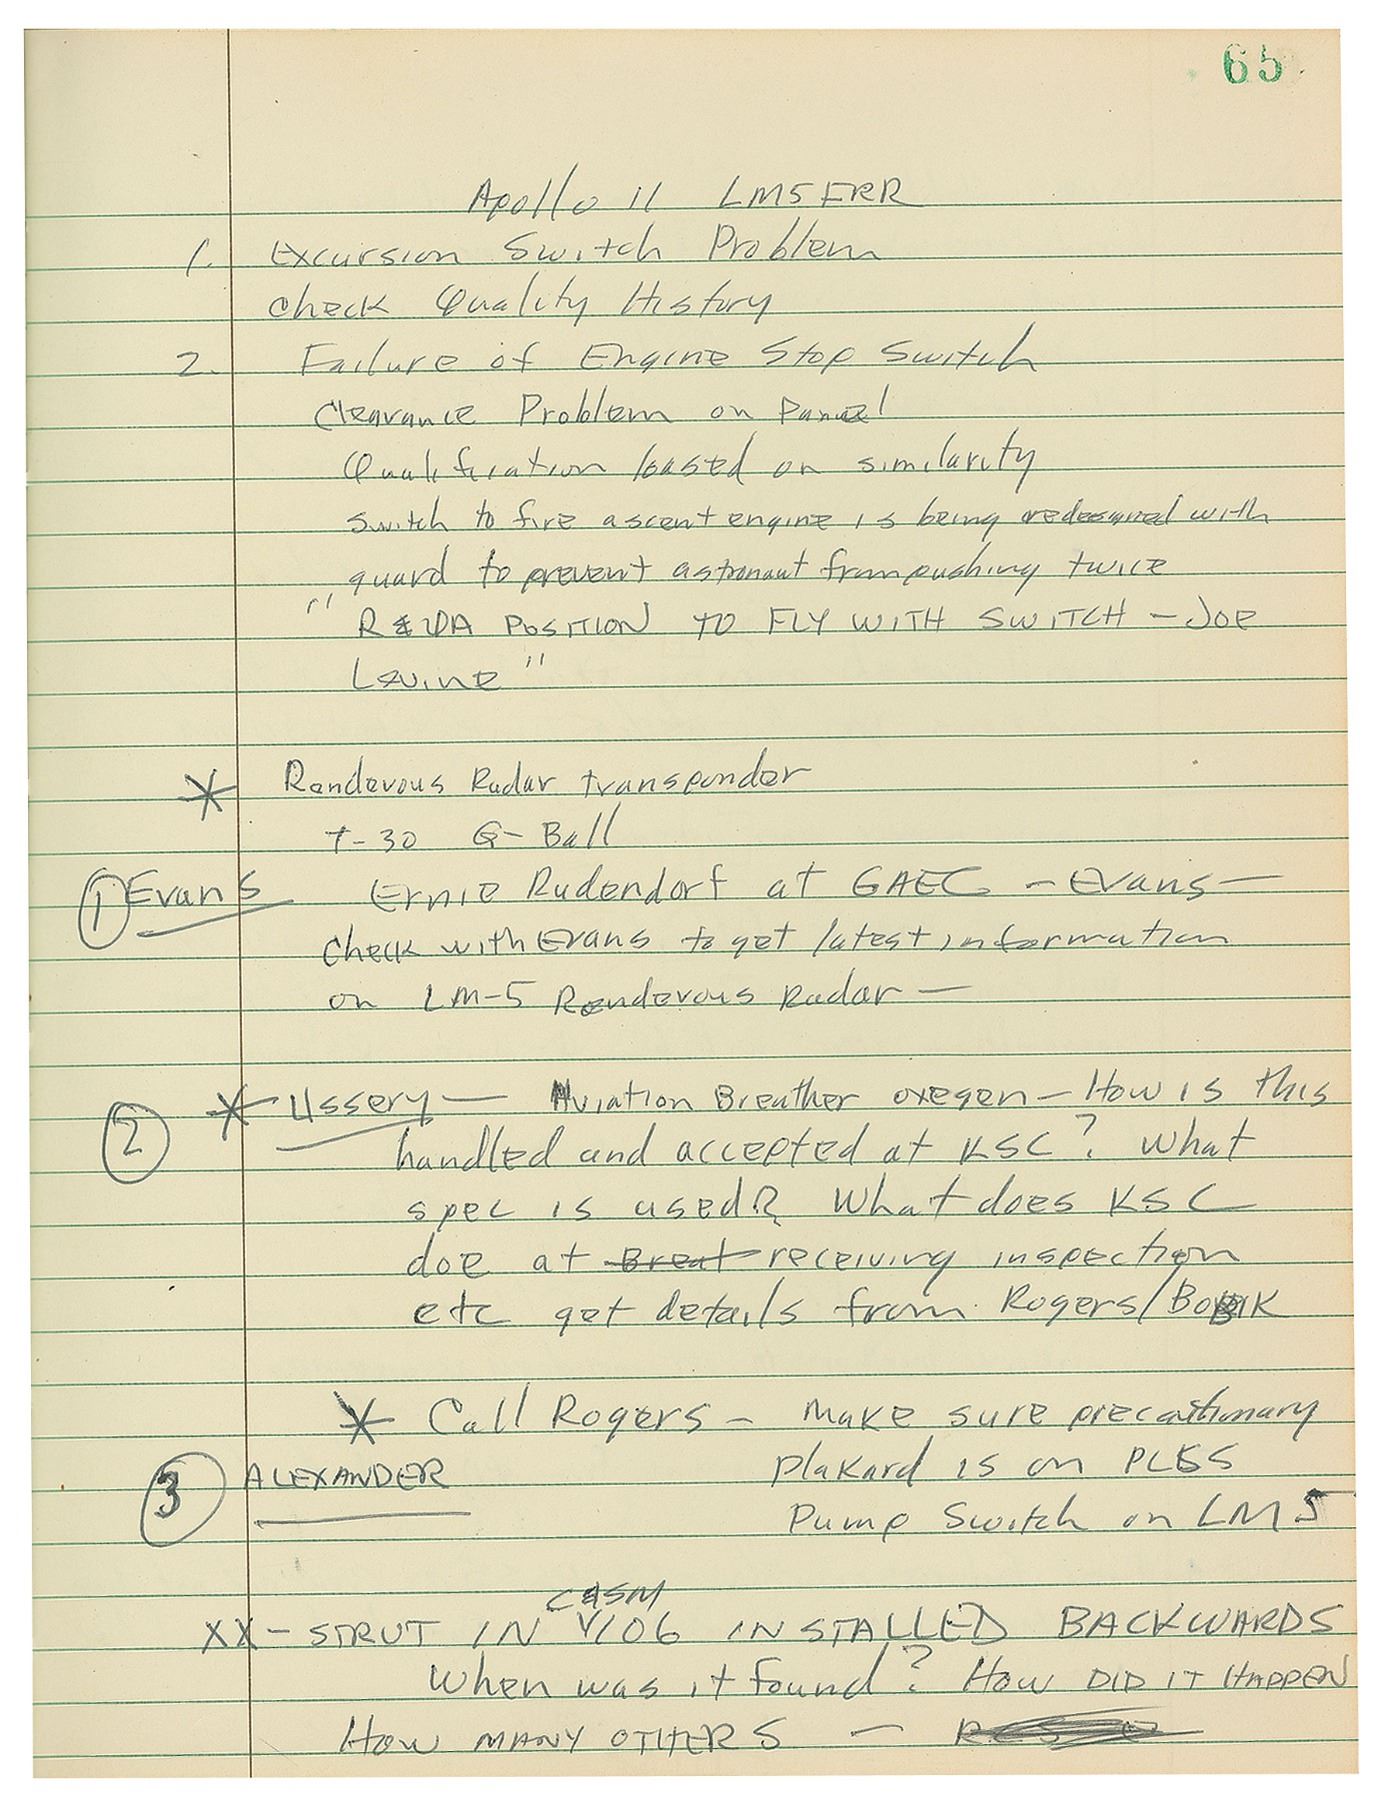 65
Apollo 11 LM5 FRR
1. Excursion Switch Problem
Check Quality History
2. Failure of Engine Stop Switch
Clearance Problem on Panel
Qualification based on similarity
Switch to fire ascent engine is being redesigned with
guard to prevent astronaut from pushing twice
" R&QA POSITION TO FLY WITH SWITCH - Joe
Levine "
* Rendevous Radar transponder
T-30 Q-Ball
① Evans Ernie Rudendorf at GAEC - Evans -
Check with Evans to get latest information
on LM-5 Rendevous Radar -
② * Ussery - Aviation Breather oxegen - How is this
handled and accepted at KSC? What
spec is used? What does KSC
doe at Breat receiving inspection
etc get details from Rogers/
* Call Rogers - Make sure precautionary
③ ALEXANDER plakard is on PLSS
Pump Switch on LM5
CASM
XX - STRUT IN V106 INSTALLED BACKWARDS
When was it found? How DID IT HAPPEN
How MANY OTHERS -